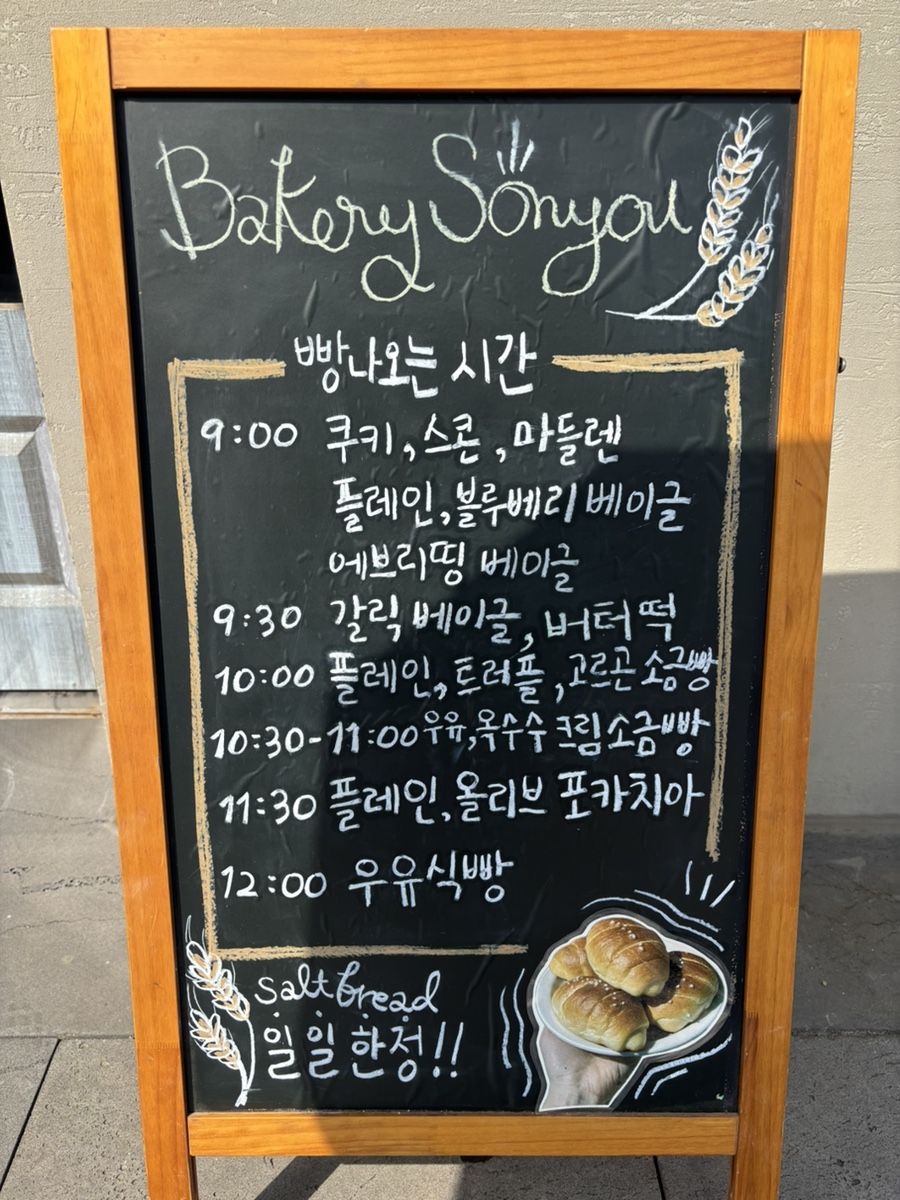 Bakery Sonyou
빵나오는 시간
9:00 쿠키, 스콘, 마들렌
플레인, 블루베리 베이글
에브리띵 베이글
9:30 갈릭 베이글, 버터떡
10:00 플레인, 트러플, 고르곤 소금빵
10:30-11:00 우유, 옥수수 크림소금빵
11:30 플레인, 올리브 포카치아
12:00 우유식빵
salt bread
일일한정!!